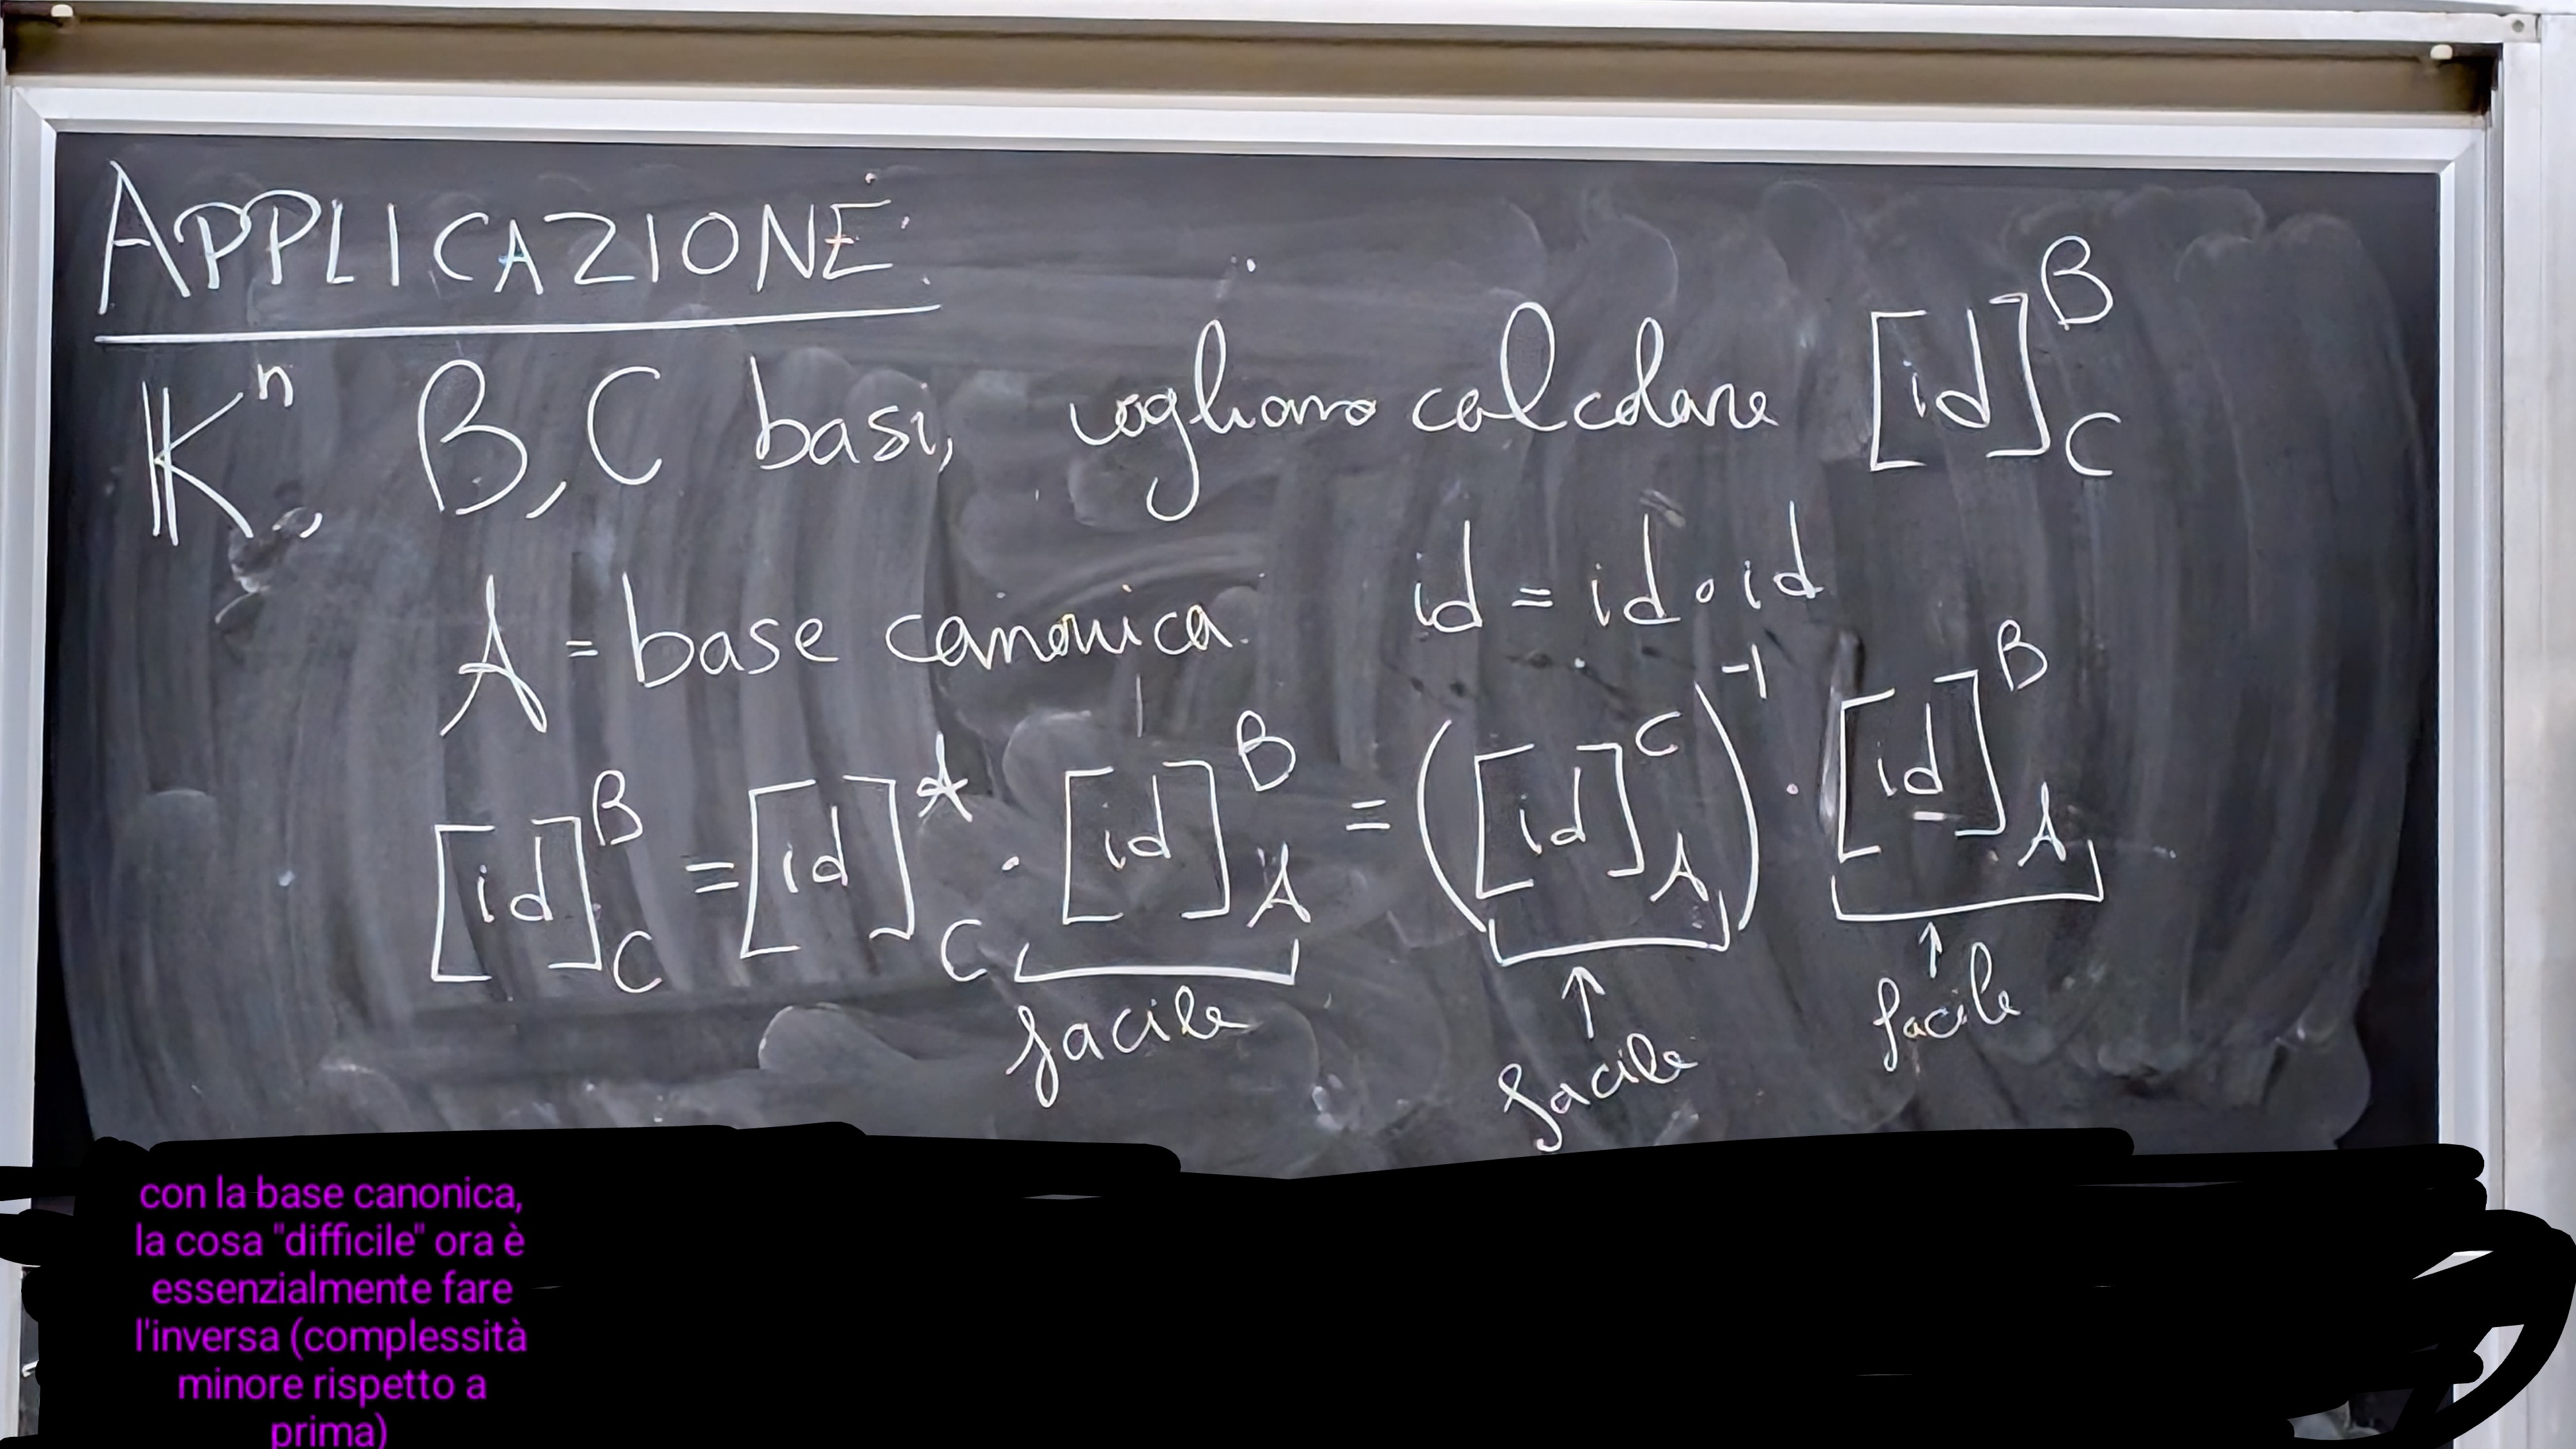 APPLICAZIONE:
𝕂ⁿ, B, C basi, vogliamo calcolare [id]^B_C
A = base canonica. id = id ∘ id
[id]^B_C = [id]^A_C · [id]^B_A = ([id]^C_A)^-1 · [id]^B_A
facile ↑ facile ↑ facile
con la base canonica,
la cosa "difficile" ora è
essenzialmente fare
l'inversa (complessità
minore rispetto a
prima)